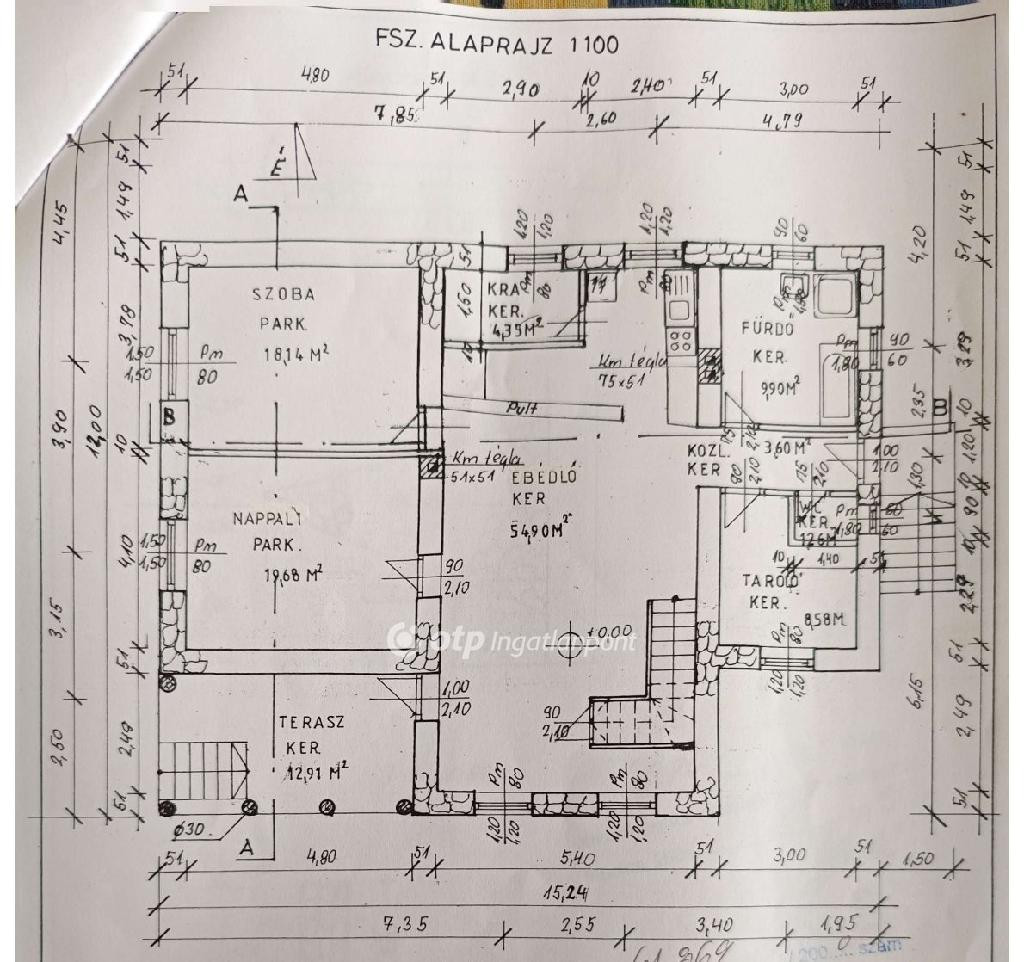 FSZ. ALAPRAJZ 1100
51 4,80 51 2,90 10 2,40 51 3,00 51
7,85 2,60 4,79
É
A
51 1,49 51 3,78 10 4,10 51 2,49 51
4,45 3,90 3,15 2,50
12,00
SZOBA
PARK.
18,14 M²
1,50
1,50
Pm
80
B
KRA
KER.
4,35 M²
1,20
1,20
Pm
80
1,20
1,20
Pm
80
51
1,50
10
Km tégla
75x51
Pult
90
60
FÜRDŐ
KER.
9,90 M²
Pm
1,80
90
60
Km tégla
51x51
EBÉDLŐ
KER
54,90 M²
KÖZL.
KER
3,60 M²
75
2,10
90
2,10
75
2,10
1,00
2,10
NAPPALI
PARK.
19,68 M²
1,50
1,50
Pm
80
90
2,10
WC
KER.
1,26 M
Pm
1,80
60
60
10 1,40 51
TÁROLÓ
KER.
8,58 M
Pm
80
1,20
1,20
otp Ingatlanpont
±0.00
1,00
2,10
90
2,10
TERASZ
KER.
12,91 M²
Ø30
A
Pm
80
1,20
1,20
Pm
80
1,20
1,20
4,20 2,35 1,30 6,15
B
51 1,49 51 3,29 10 1,20 10 90 10 2,29 51 2,49 51
51 4,80 51 5,40 51 3,00 51 1,50
15,24
7,35 2,55 3,40 1,95
200 szám